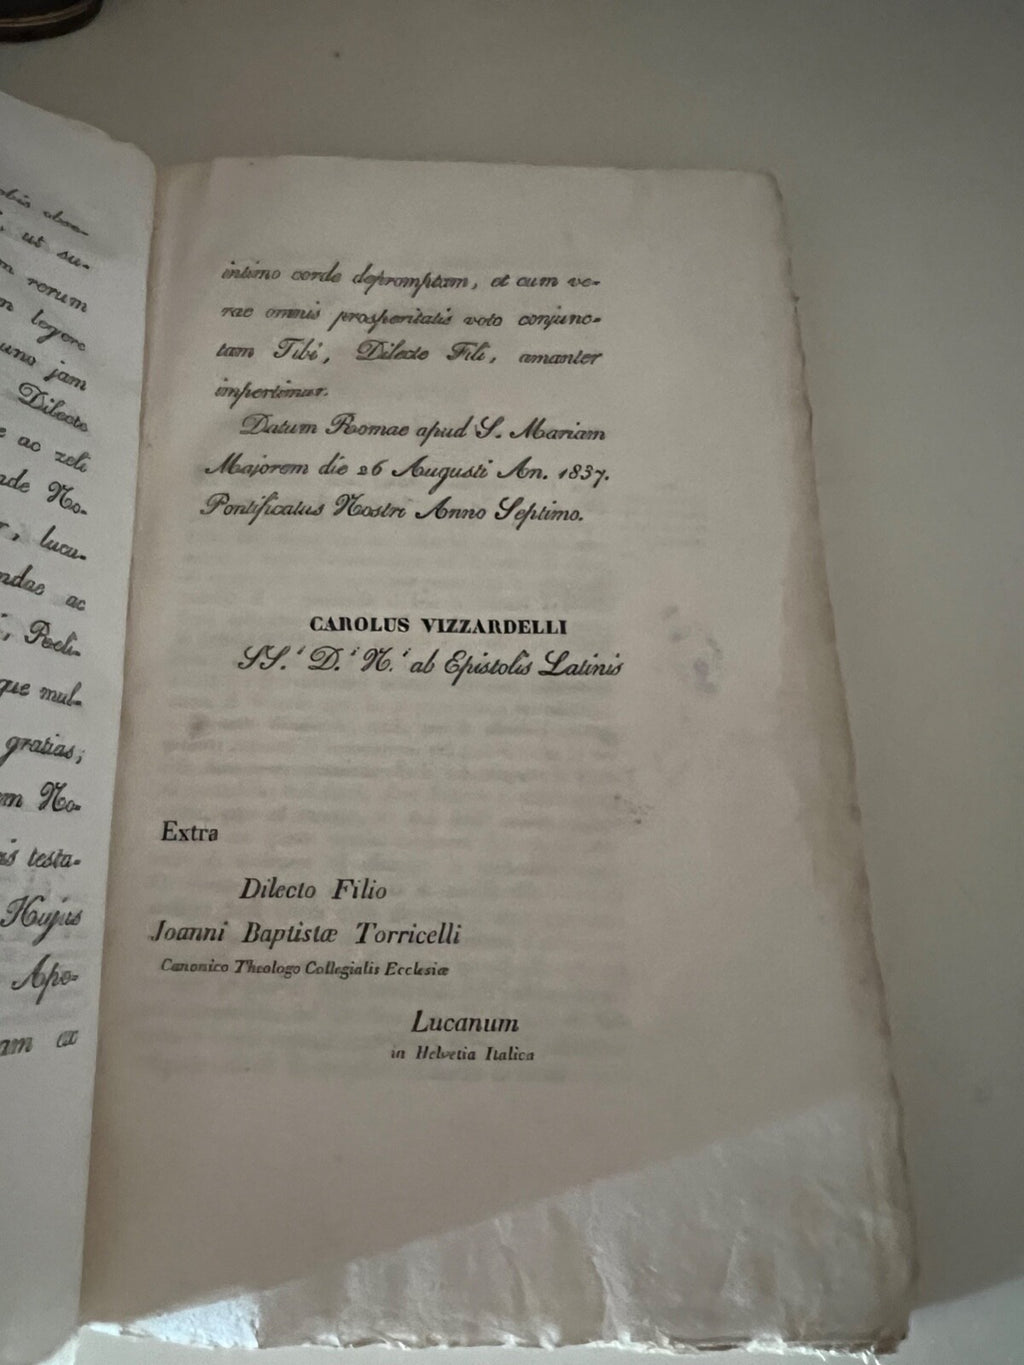 ut su-
rerum
legere
uno jam
Dilecte
ac zeli
No-
lucu-
ac
que mul-
gratias;
No-
testa-
Hujus
Apo-
ex
intimo corde depromptam, et cum ve-
rae omnis prosperitatis voto conjunc-
tam Tibi, Dilecte Fili, amanter
impertimur.
Datum Romae apud S. Mariam
Majorem die 26 Augusti An. 1837.
Pontificatus Nostri Anno Septimo.
CAROLUS VIZZARDELLI
SS.i D.i N.i ab Epistolis Latinis
Extra
Dilecto Filio
Joanni Baptistæ Torricelli
Canonico Theologo Collegialis Ecclesiæ
Lucanum
in Helvetia Italica